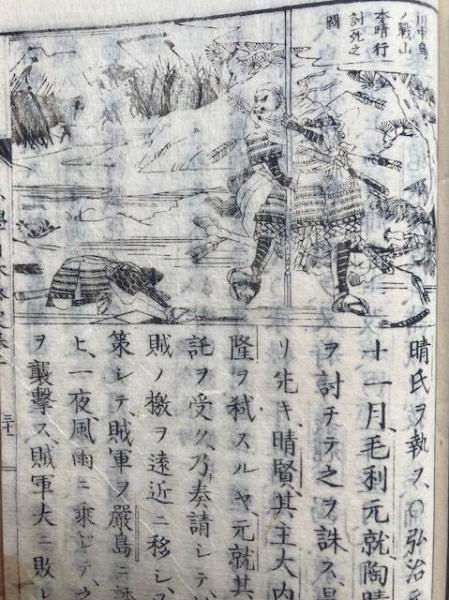 川中島
ノ戰山
本晴行
討死之
圖
晴氏ヲ執フ、○弘治
十一月、毛利元就陶晴
ヲ討チテ之ヲ誅ス、是
リ先キ、晴賢、其主大内
隆ヲ弑スルヤ、元就其
託ヲ受ク、乃チ奏請シテ、
賊ノ檄ヲ遠近ニ移シ、
策シテ、賊軍ヲ嚴島ニ誘
ヒ、一夜風雨ニ乘ジテ、之
ヲ襲撃ス、賊軍大ニ敗レ
三十一